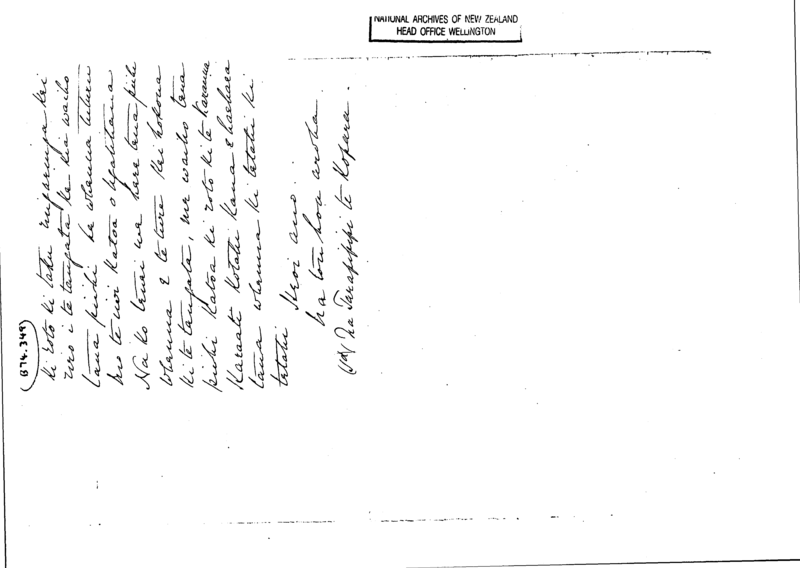 NATIONAL ARCHIVES OF NEW ZEALAND
HEAD OFFICE WELLINGTON
(B74.349)
ki roto ki taku ngaringa kei
riro i te tangata ke kia waiho
taua piihi he whenua tuturu
mo te iwi katoa o Ngatitama
Na ko tenei wa hara tena piihi
whenua e te ture kei hokona
ki te tangata, me waiho tena
piihi katoa ki roto ki te Karauna
Karaati kotahi kaua e haehaea
taua whenua ki tetahi ki
tetahi Heoi ano.
na tou hoa aroha
Na Tarapipipi te Kopara.